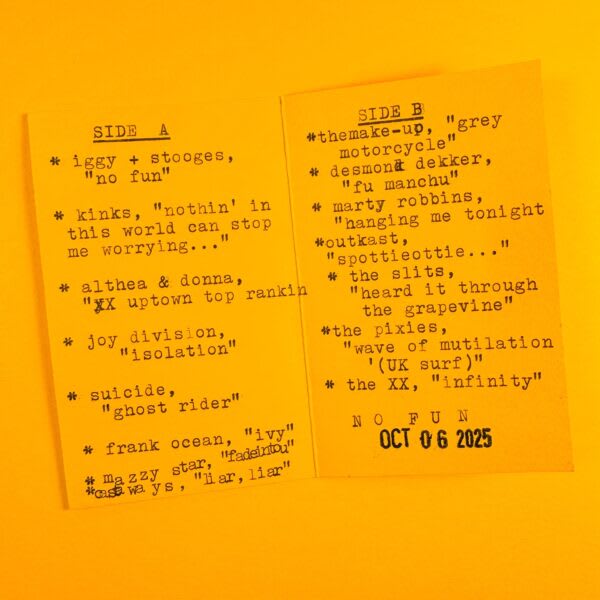 SIDE A
* iggy + stooges,
"no fun"
* kinks, "nothin' in
this world can stop
me worrying..."
* althea & donna,
"XX uptown top rankin
* joy division,
"isolation"
* suicide,
"ghost rider"
* frank ocean, "ivy"
* mazzy star, "fadeintou"
*castaways, "liar, liar"
SIDE B
*themake-up, "grey
motorcycle"
* desmond dekker,
"fu manchu"
* marty robbins,
"hanging me tonight
*outkast,
"spottieottie..."
* the slits,
"heard it through
the grapevine"
*the pixies,
"wave of mutilation
'(UK surf)"
* the XX, "infinity"
NO FUN
OCT 06 2025